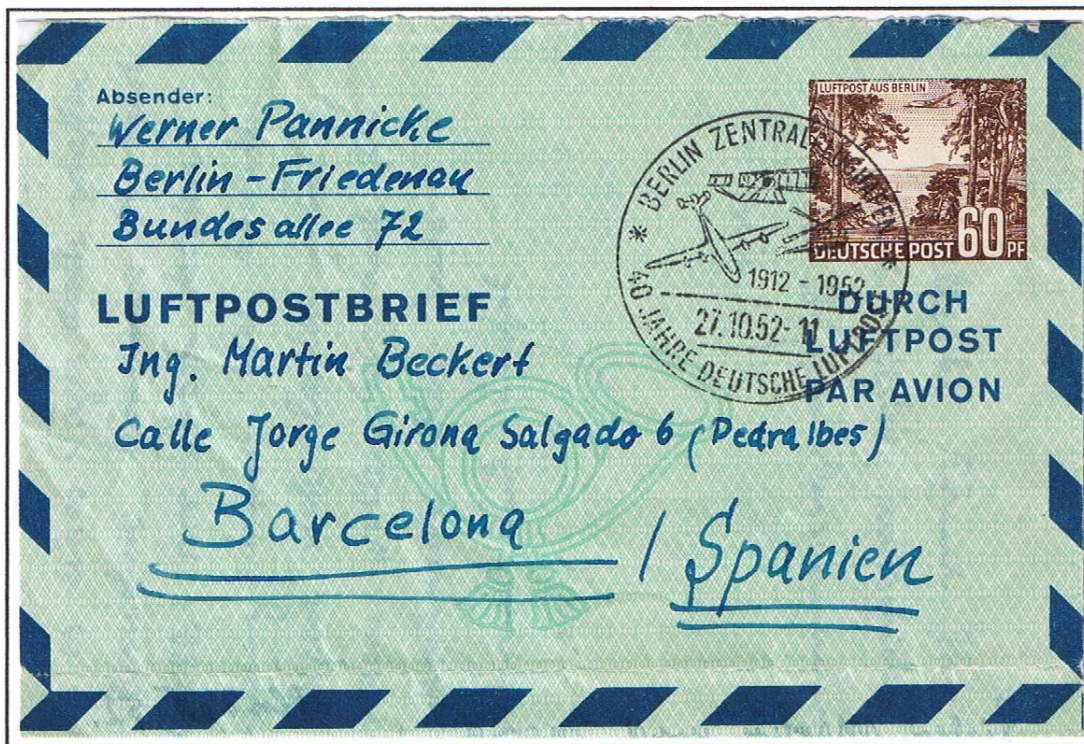 Absender:
Werner Pannicke
Berlin-Friedenau
Bundesallee 72
LUFTPOST AUS BERLIN
DEUTSCHE POST 60 PF
* BERLIN ZENTRALFLUGHAFEN *
1912 - 1952
27.10.52-11
40 JAHRE DEUTSCHE LUFTPOST
LUFTPOSTBRIEF
DURCH
LUFTPOST
PAR AVION
Ing. Martin Beckert
Calle Jorge Girona Salgado 6 (Pedralbes)
Barcelona / Spanien